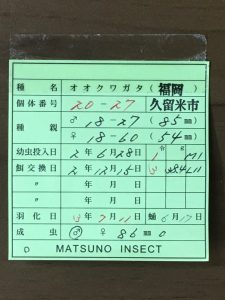 種名 オオクワガタ(福岡
個体番号 20-27 久留米市
種親 ♂ 18-27 (85㎜)
♀ 18-60 (54㎜)
幼虫投入日 2年6月28日
餌交換日 2年12月15日
〃 年 月 日
〃 年 月 日
羽化日 3年7月11日 蛹 6月17日
成虫 ♂ ♀ 86㎜ 0
MATSUNO INSECT